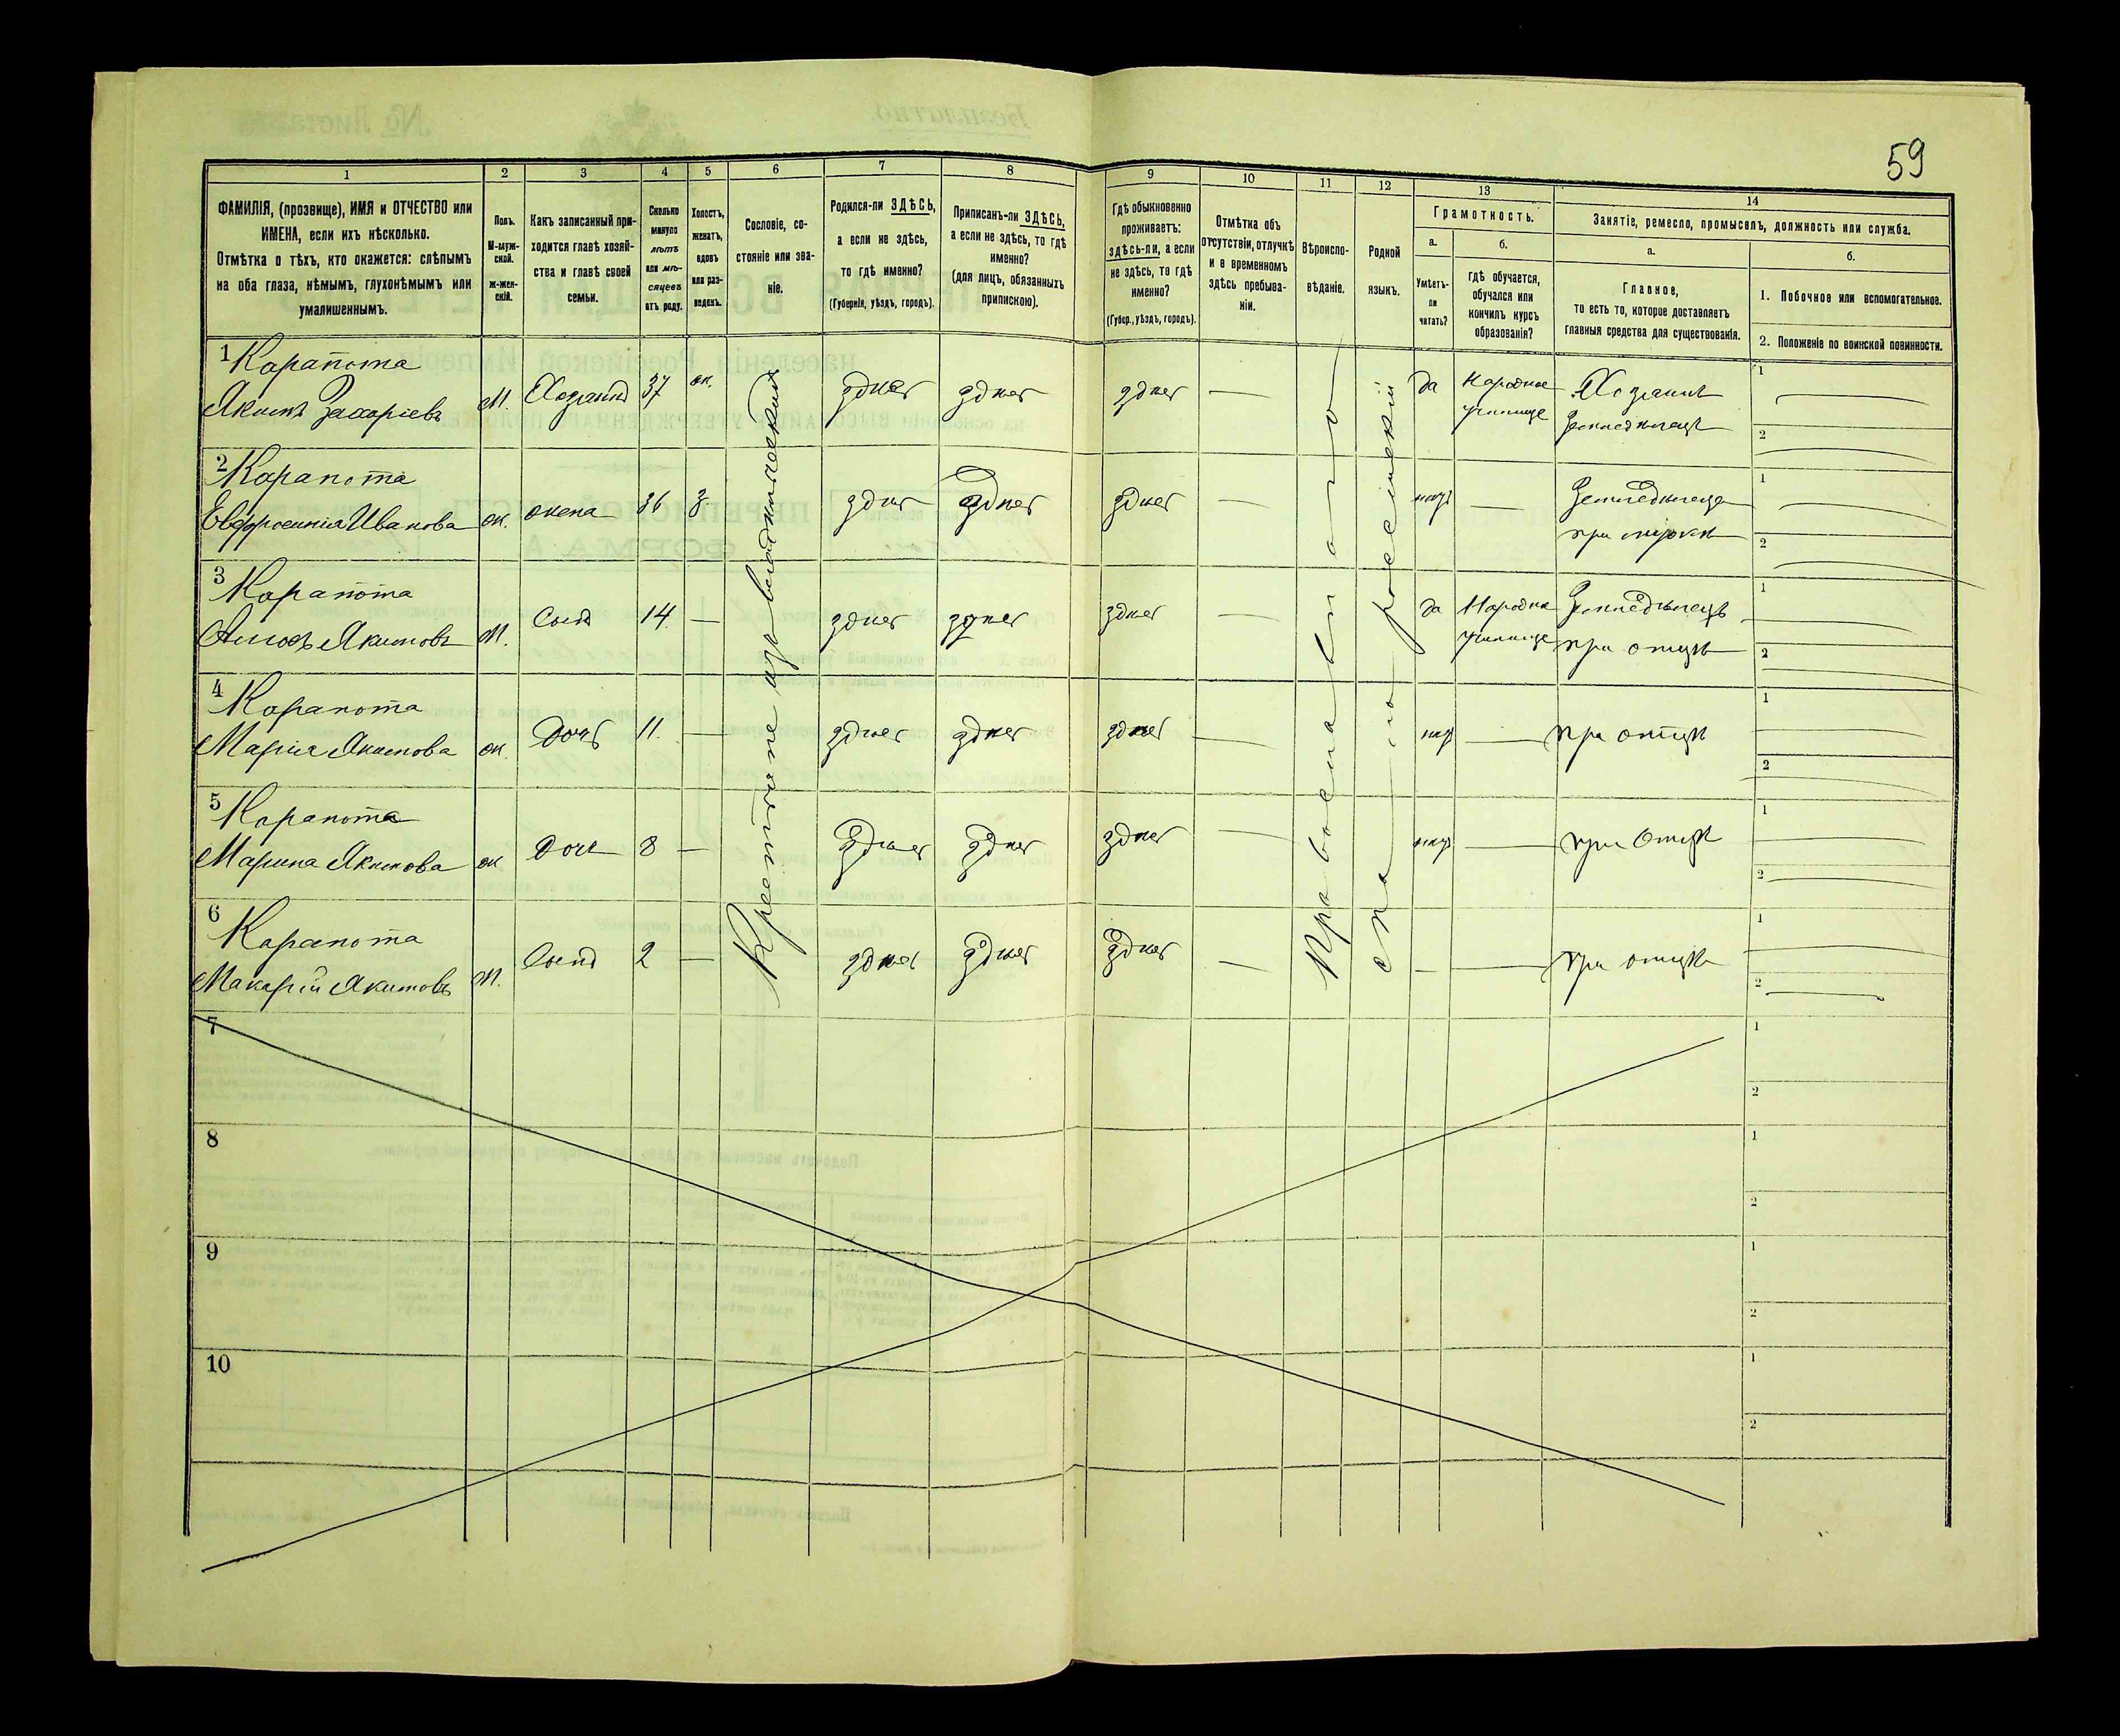 59
1
2
3
4
5
6
7
8
9
10
11
12
13
14
ФАМИЛІЯ, (прозвище), ИМЯ и ОТЧЕСТВО или
ИМЕНА, если ихъ нѣсколько.
Отмѣтка о тѣхъ, кто окажется: слѣпымъ
на оба глаза, нѣмымъ, глухонѣмымъ или
умалишеннымъ.
Полъ.
М-муж-
ской.
Ж-жен-
скій.
Какъ записанный при-
ходится главѣ хозяй-
ства и главѣ своей
семьи.
Сколько
минуло
лѣтъ
или мѣ-
сяцевъ
отъ роду.
Холостъ,
женатъ,
вдовъ
или раз-
веденъ.
Сословіе, со-
стояніе или зва-
ніе.
Родился-ли ЗДѢСЬ,
а если не здѣсь,
то гдѣ именно?
(Губернія, уѣздъ, городъ).
Приписанъ-ли ЗДѢСЬ,
а если не здѣсь, то гдѣ
именно?
(для лицъ, обязанныхъ
припискою).
Гдѣ обыкновенно
проживаетъ:
здѣсь-ли, а если
не здѣсь, то гдѣ
именно?
(Губер., уѣздъ, городъ).
Отмѣтка объ
отсутствіи, отлучкѣ
и о временномъ
здѣсь пребыва-
ніи.
Вѣроиспо-
вѣданіе.
Родной
языкъ.
Грамотность.
а.
Умѣетъ-
ли
читать?
б.
Гдѣ обучается,
обучался или
кончилъ курсъ
образованія?
Занятіе, ремесло, промыселъ, должность или служба.
а.
Главное,
то есть то, которое доставляетъ
главныя средства для существованія.
б.
1. Побочное или вспомогательное.
2. Положеніе по воинской повинности.
1 Карапота
Якимъ Захаріевъ М. Хозяинъ 37 ж. здѣсь здѣсь здѣсь — да Народное училище Хозяинъ Земледѣлецъ 1 2
2 Карапота
Евфросинія Иванова ж. жена 36 з. здѣсь здѣсь здѣсь — — 1 2
3 Карапота
Якимовъ М. Сынъ 14 — здѣсь здѣсь здѣсь — да Народн училище Земледѣлецъ при отцѣ 1 2
4 Карапота
Марія Якимова ж. Дочь 11. — здѣсь здѣсь здѣсь — — при отцѣ 1 2
5 Карапота
Марина Якимова ж Дочь 8 — здѣсь здѣсь здѣсь — — при Отцѣ 1 2
6 Карапота
Макарій Якимовъ М. Сынъ 2 — здѣсь здѣсь здѣсь — — — при отцѣ 1 2
Крестьяне изъ владѣльческихъ
Православнаго
россійскій
7 1 2
8 1 2
9 1 2
10 1 2